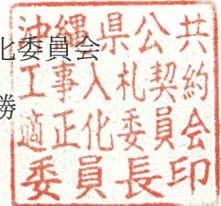 化委員会
勝
沖縄県公共
工事入札契約
適正化委員会
委員長印